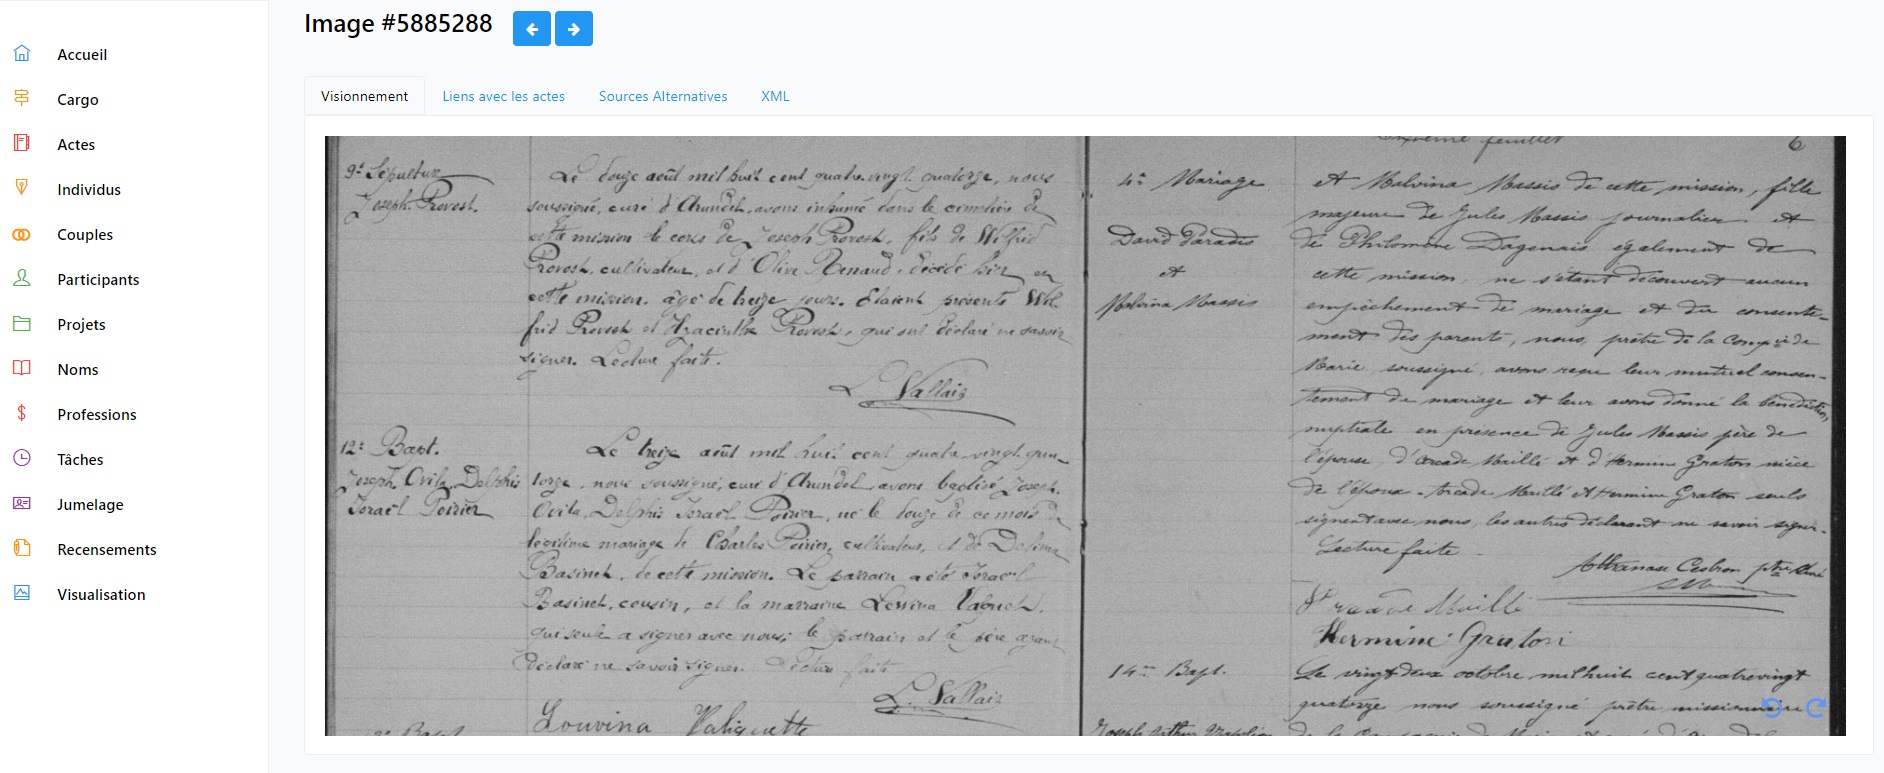 Image #5885288
Accueil
Cargo
Actes
Individus
Couples
Participants
Projets
Noms
Professions
Tâches
Jumelage
Recensements
Visualisation
Visionnement
Liens avec les actes
Sources Alternatives
XML
9e Sépulture
Joseph Provost.
Le douze août mil huit cent quatre vingt quatorze, nous
soussigné, curé d'Arundel, avons inhumé dans le cimetière de
cette mission le corps de Joseph Provost, fils de Wilfrid
Provost, cultivateur, et d'Olive Renaud, décédé hier en
cette mission, âgé de treize jours. Etaient présents Wil
frid Provost et Hyacinthe Provost, qui ont déclaré ne savoir
signer. Lecture faite.
L. Vallais
12e Bapt.
Joseph Ovila Delphis
Israël Poirier
Le treize août mil huit cent quatre-vingt qua-
torze, nous soussigné, curé d'Arundel, avons baptisé Joseph
Ovila Delphis Israël Poirier, né le douze de ce mois du
légitime mariage de Charles Poirier, cultivateur, et de
Basinet, de cette mission. Le parrain a été Israël
Basinet, cousin, et la marraine
qui seule a signer avec nous; le parrain et le père ayant
déclaré ne savoir signer. Lecture faite
L. Vallais
Louvina Valiquette
Bapt
feuillet
6
4e Mariage
David Paradis
et
Malvina Massis
et Malvina Massis de cette mission, fille
majeure de Jules Massis journalier et
de Philomène Dagenais également de
cette mission, ne s'étant découvert aucun
empêchement de mariage et du consente-
ment des parents, nous, prêtre de la Compie de
Marie, soussigné, avons reçu leur mutuel consen-
tement de mariage et leur avons donné la bénédiction
nuptiale en présence de Jules Massis père de
l'épouse, d'Arcade Maillé et d'Hermine Graton nièce
de l'époux. Arcade Maillé et Hermine Graton seuls
signent avec nous, les autres déclarant ne savoir signer.
Lecture faite
Athanase Cesbron ptre
Arcade Maillé
Hermine Graton
14me Bapt.
Joseph Arthur Napoléon
Le vingt deux octobre mil huit cent quatre vingt
quatorze nous soussigné prêtre missionnaire
de la Compagnie de Marie